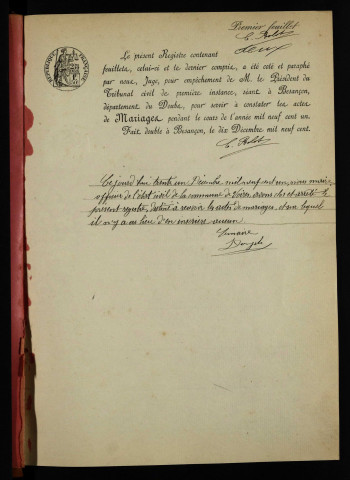 Premier feuillet
Le présent Registre contenant deux
feuillets, celui-ci et le dernier compris, a été coté et paraphé
par nous, Juge, pour empêchement de M. le Président du
Tribunal civil de première instance, séant à Besançon,
département du Doubs, pour servir à constater les actes
de Mariages pendant le cours de l'année mil neuf cent un.
Fait double à Besançon, le dix Décembre mil neuf cent.
Cejourd'hui trente un Décembre mil neuf cent un, nous maire
officier de l'état civil de la commune de avons clos et arrêté le
présent registre, destiné à recevoir les actes de mariages, et sur lequel
il n'y a eu lieu d'en inscrire aucun.
Le maire
RÉPUBLIQUE FRANÇAISE